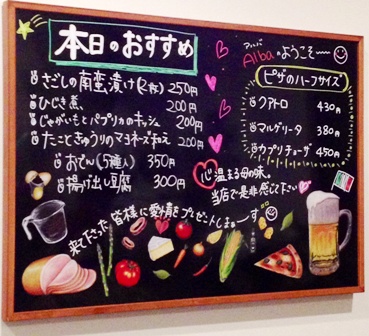 本日のおすすめ
さごしの南蛮漬け(2枚) 250円
ひじき煮 200円
じゃがいもとパプリカのキッシュ 200円
たこときゅうりのマヨネーズ和え 200円
おでん(5種入) 350円
揚げ出し豆腐 300円
アルバ
Albaへようこそ〜
ピザのハーフサイズ
クアトロ 430円
マルゲリータ 380円
カプリチョーザ 450円
心温まる母の味。
当店で是非感じて下さい
来て下さった皆様に愛情をプレゼントしまーす